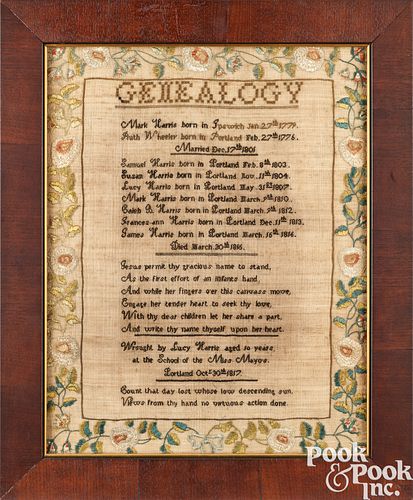 GENEALOGY
Mark Harris born in Ipswich Jan. 27th 1779.
Ruth Wheeler born in Portland Feb. 27th 1776.
Married Dec. 17th 1801.
Samuel Harris born in Portland Feb. 8th 1803.
Susan Harris born in Portland Nov. 11th 1804.
Lucy Harris born in Portland May. 31st 1807.
Mark Harris born in Portland March. 9th 1810.
Caleb B. Harris born in Portland March. 9th 1812.
Frances-ann Harris born in Portland Dec. 11th 1813.
James Harris born in Portland March. 16th 1816.
Died March. 30th 1816.
Jesus permit thy gracious name to stand,
As the first effort of an infants hand,
And while her fingers o'er this canvass move,
Engage her tender heart to seek thy love,
With thy dear children let her share a part,
And write thy name thyself upon her heart.
Wrought by Lucy Harris aged 10 years,
at the School of the Miss Mayo's.
Portland Oct. 30th 1817.
Count that day lost whose low descending sun,
Views from thy hand no virtuous action done.
POOK
& POOK
Inc.